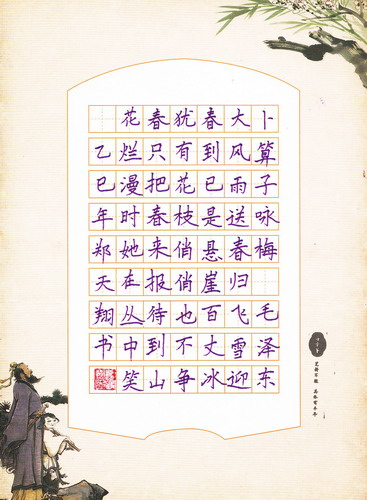 卜算子咏梅 毛泽东
大风雨送春归飞雪迎
春到已是悬崖百丈冰
犹有花枝俏俏也不争
春只把春来报待到山
花烂漫时她在丛中笑
乙巳年郑天翔书